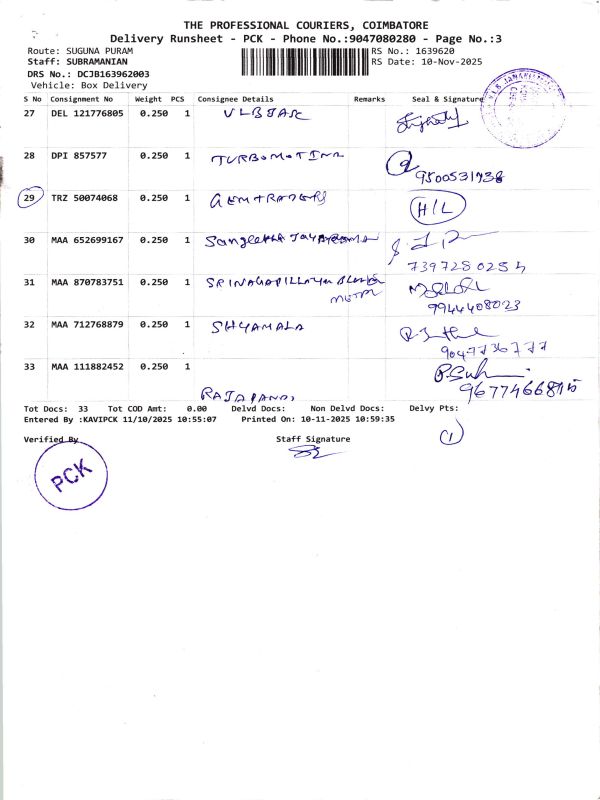 THE PROFESSIONAL COURIERS, COIMBATORE
Delivery Runsheet - PCK - Phone No.:9047080280 - Page No.:3
Route: SUGUNA PURAM RS No.: 1639620
Staff: SUBRAMANIAN RS Date: 10-Nov-2025
DRS No.: DCJB163962003
Vehicle: Box Delivery
S No Consignment No Weight PCS Consignee Details Remarks Seal & Signature
27 DEL 121776805 0.250 1 VLBJASC
28 DPI 857577 0.250 1 TURBOMOTINA
9500531938
29 TRZ 50074068 0.250 1 GEMTRADERS H/L
30 MAA 652699167 0.250 1 Sangeetha
7397280254
31 MAA 870783751 0.250 1
9944408023
32 MAA 712768879 0.250 1 SHYAMALA
9047736777
33 MAA 111882452 0.250 1
RAJAPANDI
Tot Docs: 33 Tot COD Amt: 0.00 Delvd Docs: Non Delvd Docs: Delvy Pts:
Entered By :KAVIPCK 11/10/2025 10:55:07 Printed On: 10-11-2025 10:59:35
1
Verified By Staff Signature
PCK